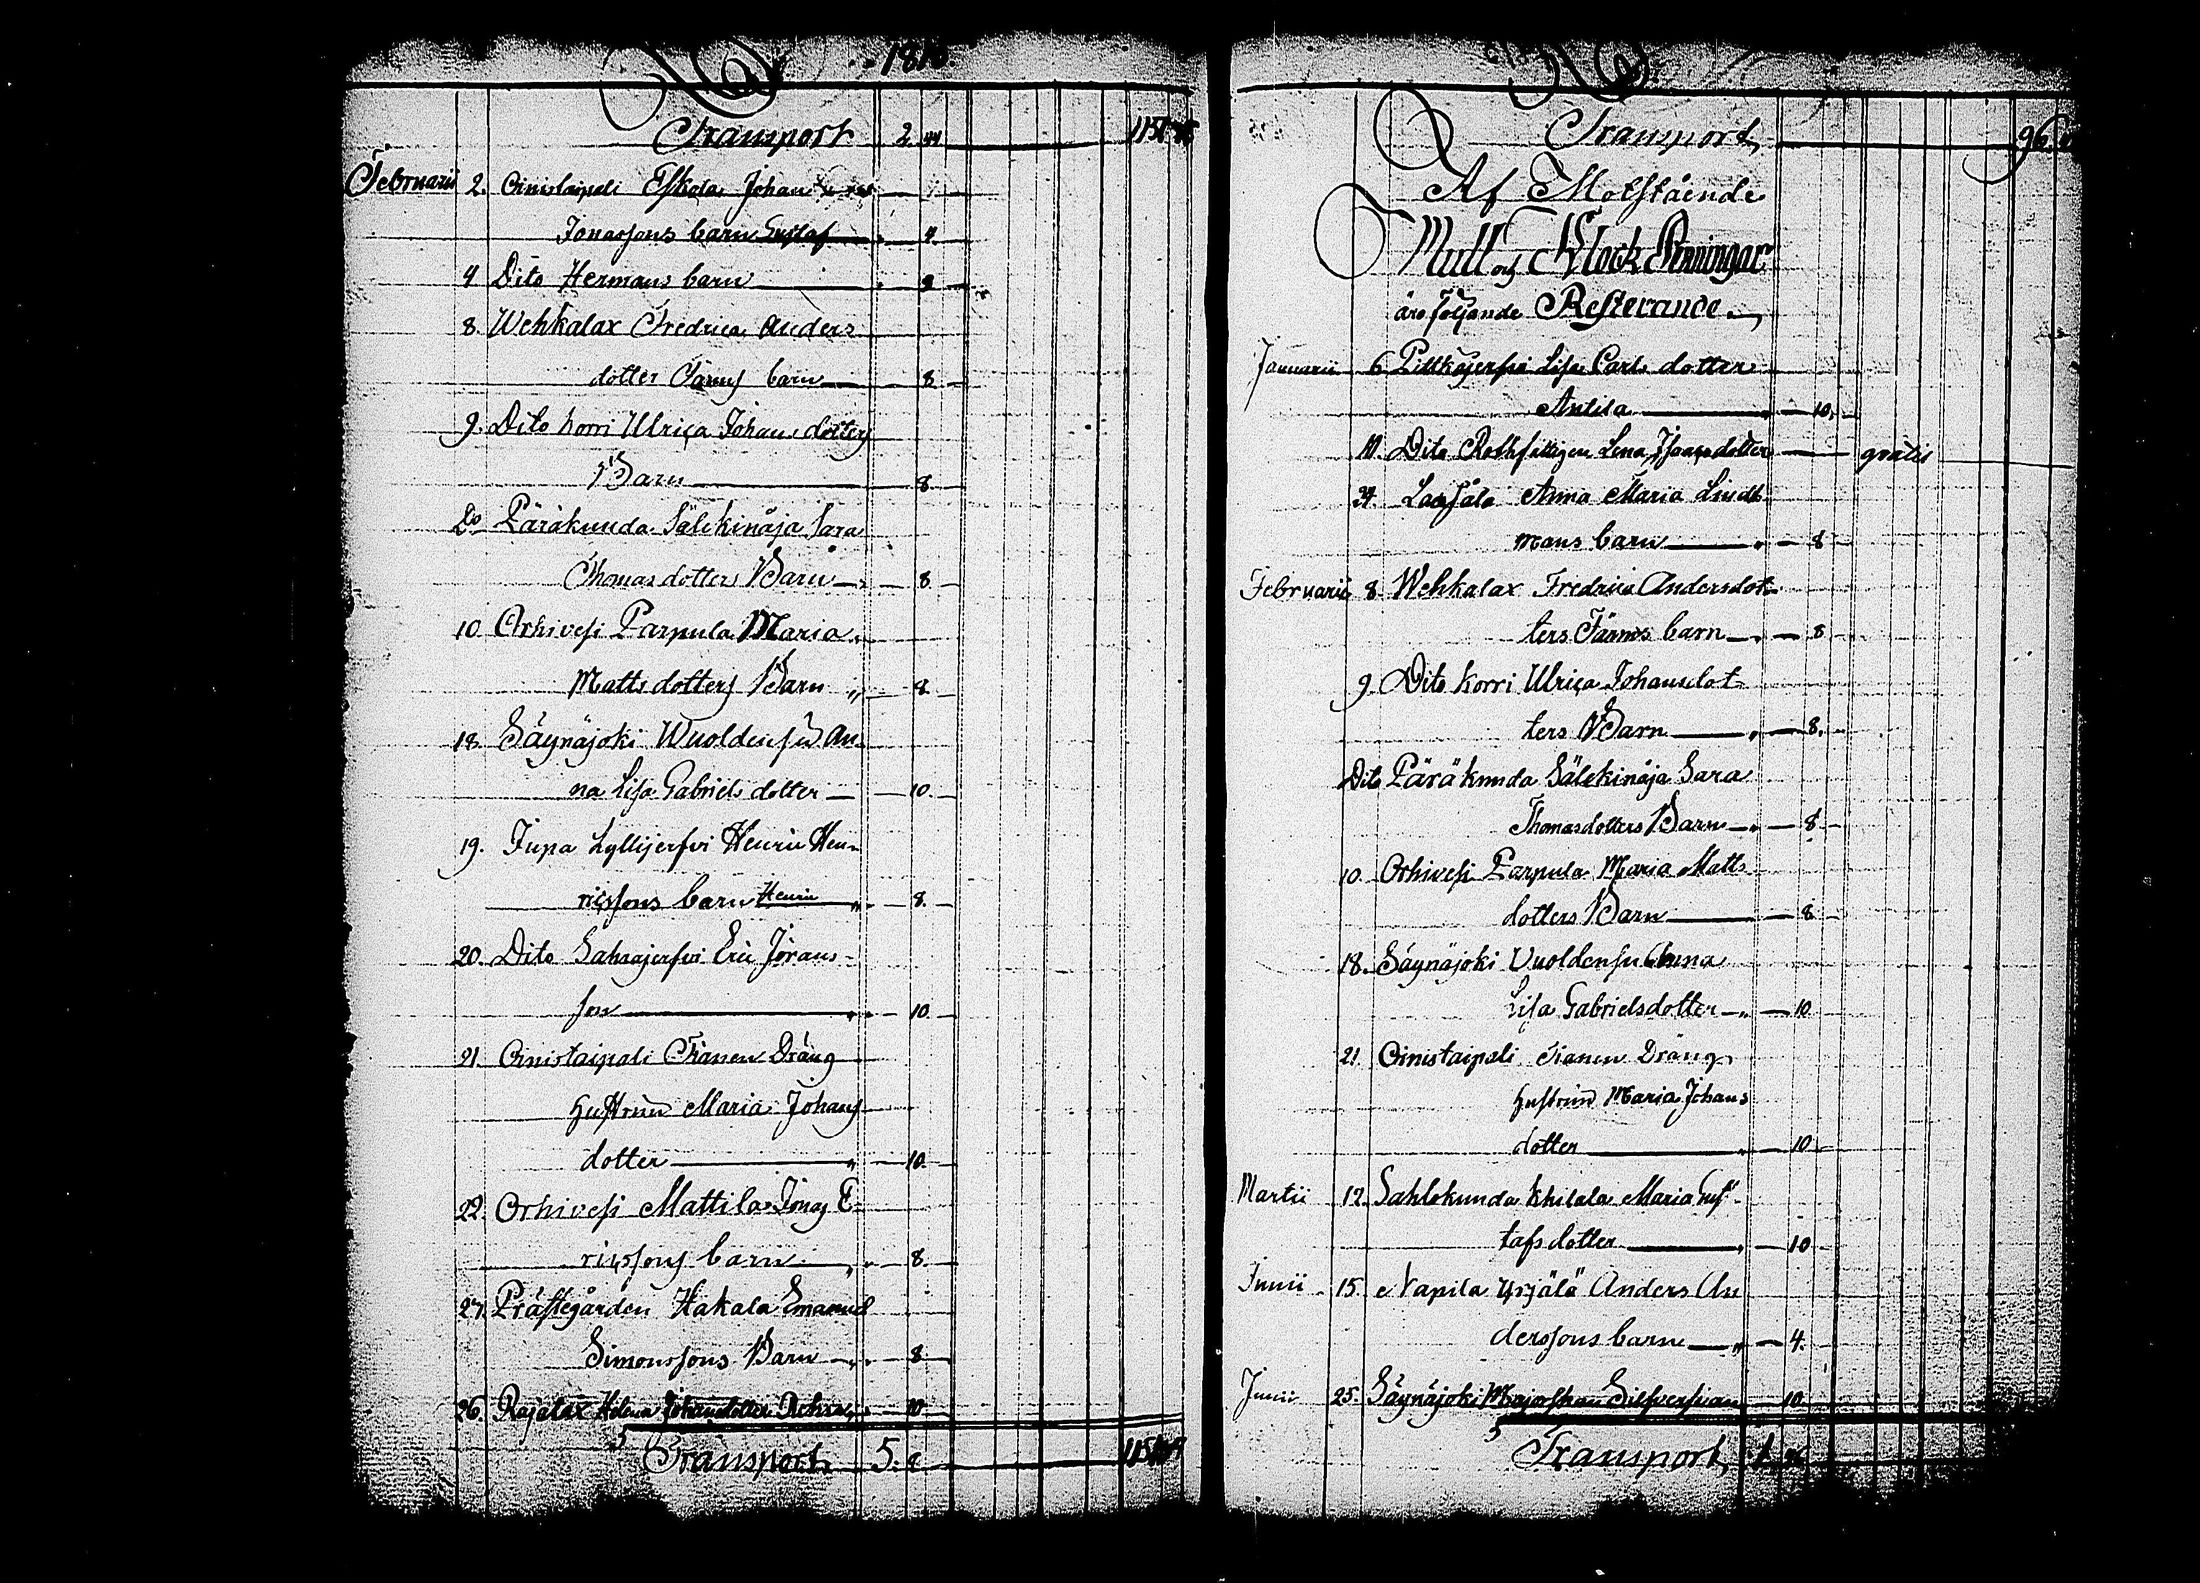 Transport 2.44
Februarii 2. Oinistaipali Eskola Johan
Jonassons barn Gustaf 4.
4 Dito Hermans barn
8. Wehkalax Fredrica Anders
dotter Färms barn 8
9. Dito Korri Ulrica Johans dotters
Barn 8.
Do Päräkunda Sälekinåja Sara
Thomas dotters Barn 8.
10 Orhivesi Parpula Maria
Matts dotters Barn 8
18. Säynäjoki Wuoldensu An-
na Lisa Gabriels dotter 10.
19. Jupa Lyllijerfvi Henric Hen-
ricssons barn Henric 8.
20. Dito Sahrajerfvi Eric Jörans-
son 10.
21. Oinistaipali Tianen Dräng
hustrun Maria Johans
dotter 10.
22. Orhivesi Mattila Jonas E-
ricssons barn 8.
27. Prästegården Hakala Emanuel
Simonssons Barn 8
26. Rajalax Helena Johansdotter 10
Transport 5.
Transport 96.
Af Motstående
Mull och Klock Penningar
äro följande Resterande
Januarii 6 Pitkäjerfvi Lisa Carls dotter
Antila 10.
Dito Lena dotter gratis
Anna Maria Lindh
mans barn 8
Februarii 8. Wehkalax Fredrica Andersdot-
ters Färms barn 8
9. Dito Korri Ulrica Johansdot
ters Barn 8.
Dito Päräkunda Sälekinåja Sara
Thomasdotters Barn 8.
10. Orhivesi Parpula Maria Matts
dotters Barn 8
18. Säynäjoki Vuoldensu Anna
Lisa Gabrielsdotter 10
21. Oinistaipali Tianen Dräng
hustrun Maria Johans
dotter 10
Martii 12. Sahlokunda Maria Gus-
tafs dotter 10
Junii 15. Napila Yrjälä Anders An
derssons barn 4.
Junii 25. Säynäjoki Majorskan 10.
Transport